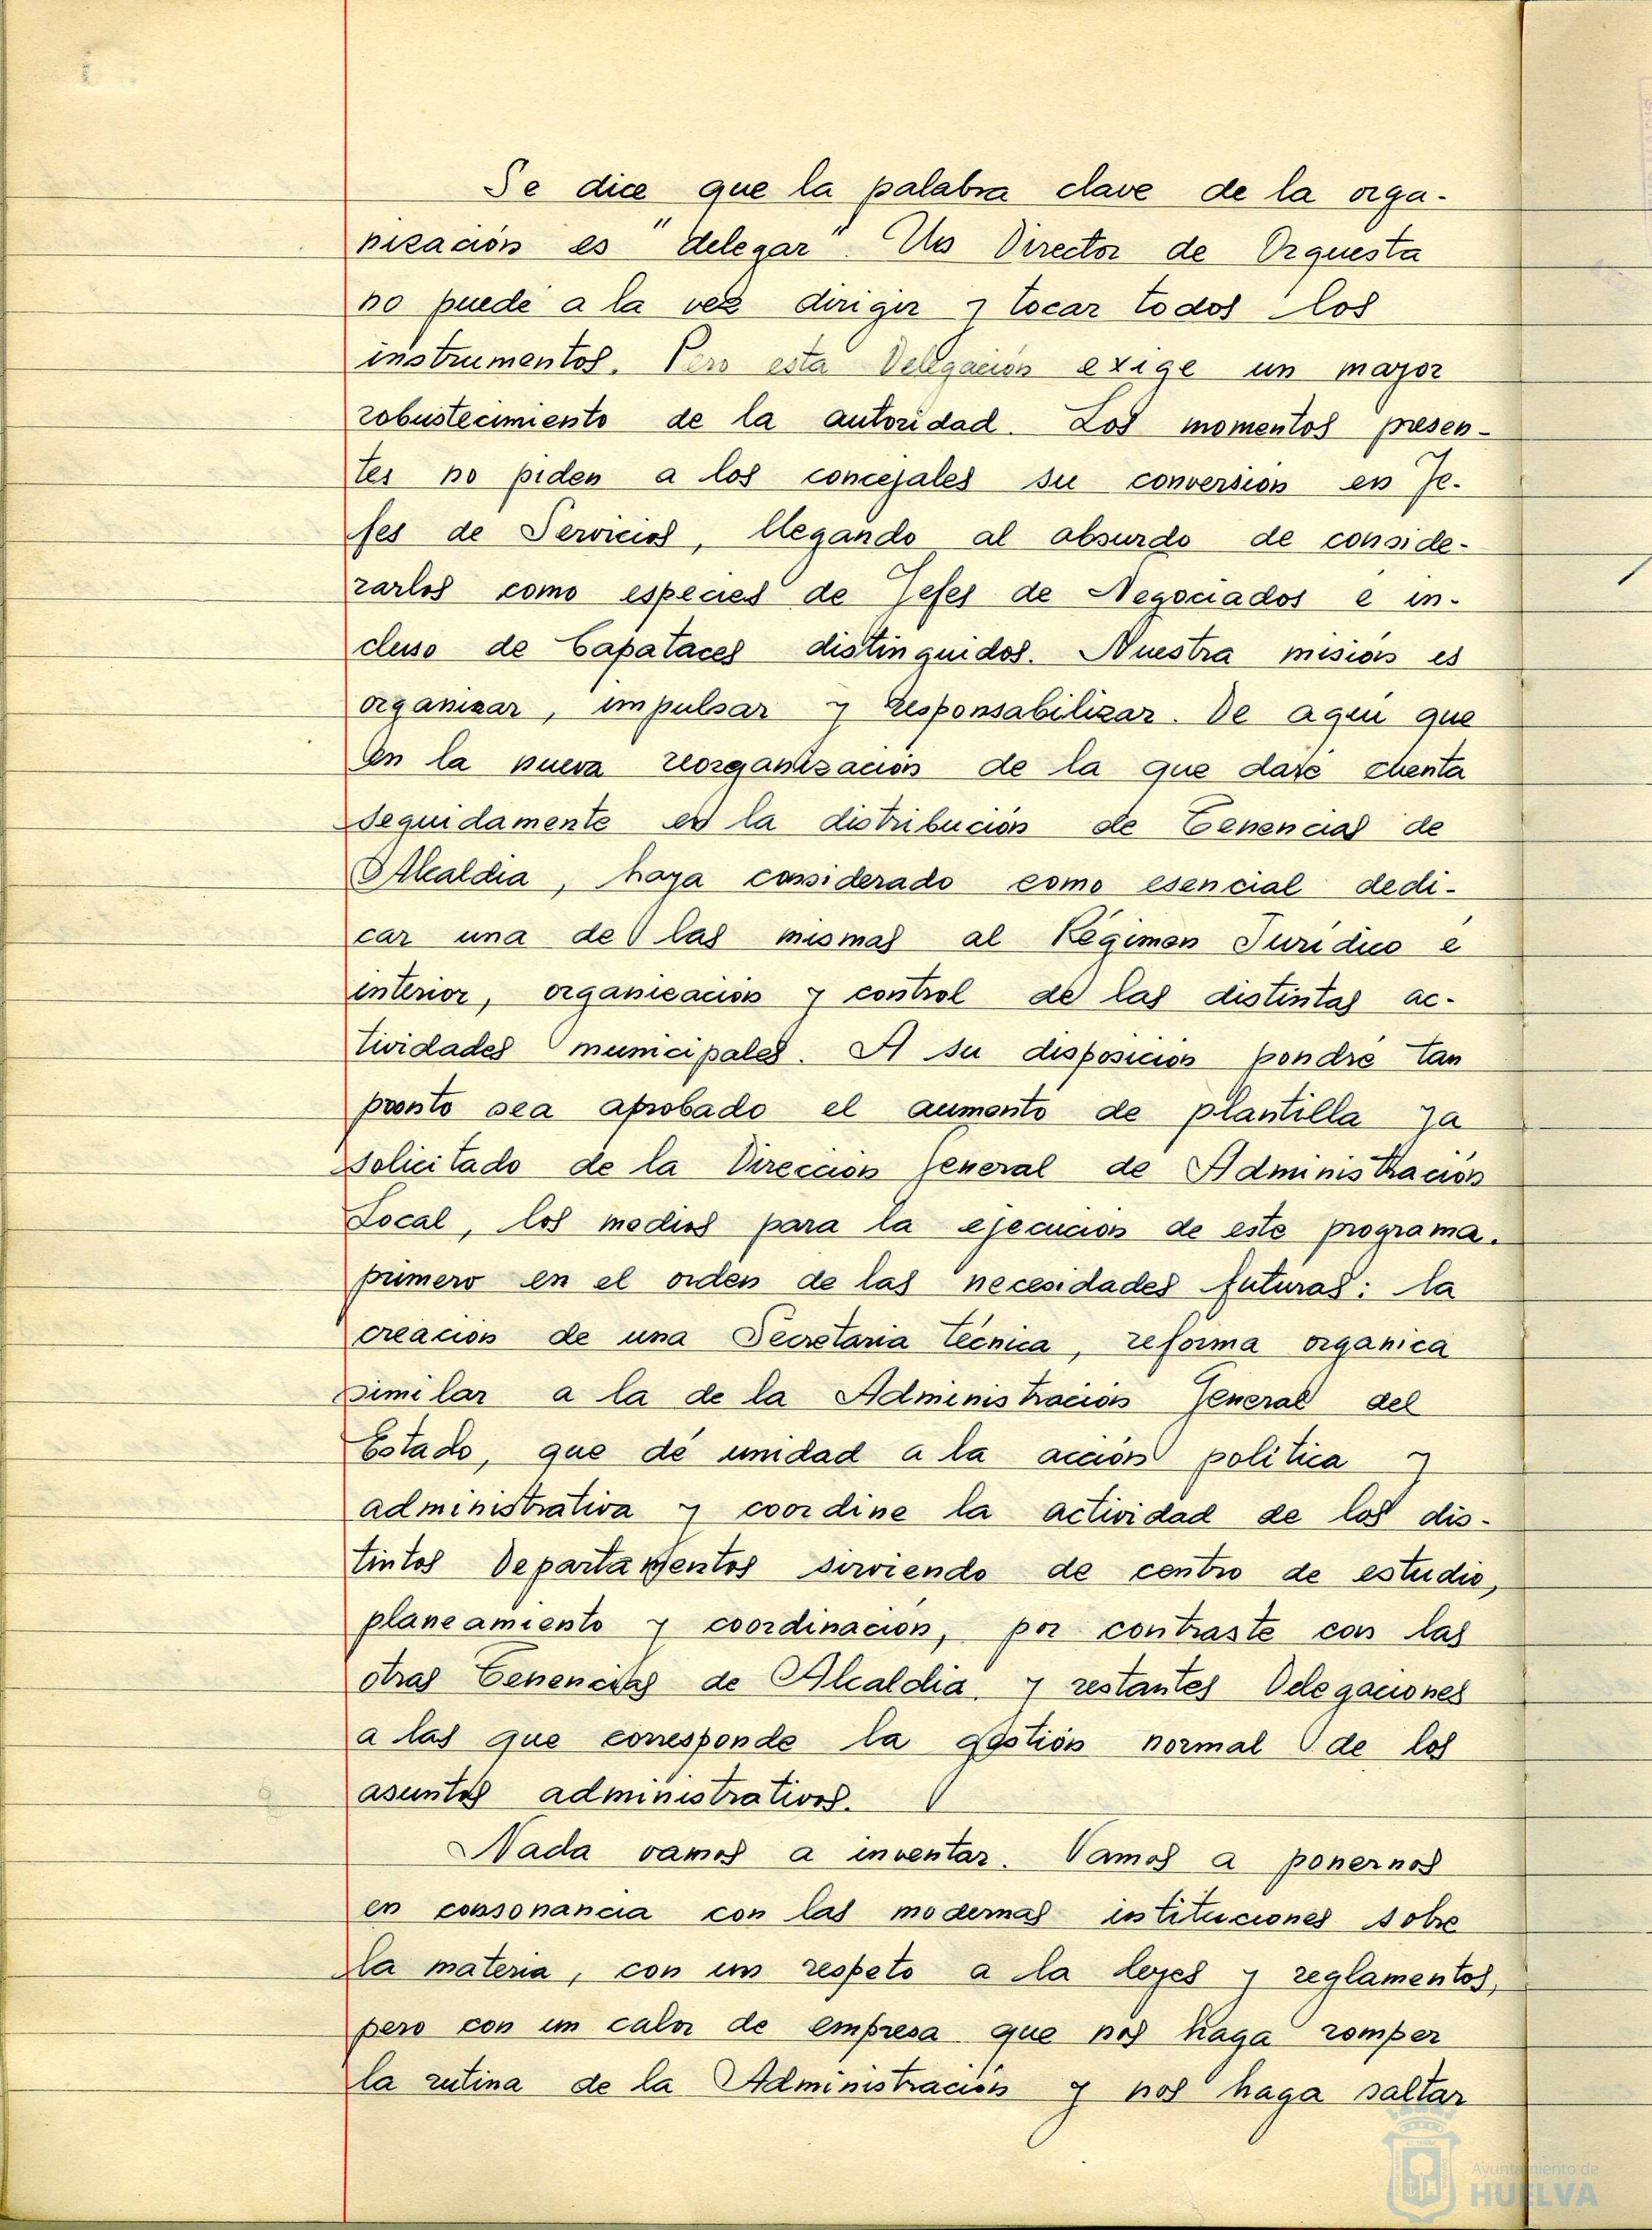 Se dice que la palabra clave de la orga-
nización es "delegar". Un Director de Orquesta
no puede a la vez dirigir y tocar todos los
instrumentos. Pero esta Delegación exige un mayor
robustecimiento de la autoridad. Los momentos presen-
tes no piden a los concejales su conversión en Je-
fes de Servicios, llegando al absurdo de conside-
rarlos como especies de Jefes de Negociados e in-
cluso de Capataces distinguidos. Nuestra misión es
organizar, impulsar y responsabilizar. De aquí que
en la nueva reorganización de la que daré cuenta
seguidamente en la distribución de Tenencias de
Alcaldia, haya considerado como esencial dedi-
car una de las mismas al Régimen Juridico e
interior, organización y control de las distintas ac-
tividades municipales. A su disposición pondré tan
pronto sea aprobado el aumento de plantilla ya
solicitado de la Dirección General de Administración
Local, los medios para la ejecución de este programa.
primero en el orden de las necesidades futuras: la
creación de una Secretaria Técnica, reforma organica
similar a la de la Administración General del
Estado, que dé unidad a la acción politica y
administrativa y coordine la actividad de los dis-
tintos Departamentos sirviendo de centro de estudio,
planeamiento y coordinación, por contraste con las
otras Tenencias de Alcaldia. y restantes Delegaciones
a las que corresponde la gestión normal de los
asuntos administrativos.
Nada vamos a inventar. Vamos a ponernos
en consonancia con las modernas instituciones sobre
la materia, con un respeto a la leyes y reglamentos,
pero con un calor de empresa que nos haga romper
la rutina de la Administración y nos haga saltar
Ayuntamiento de
HUELVA